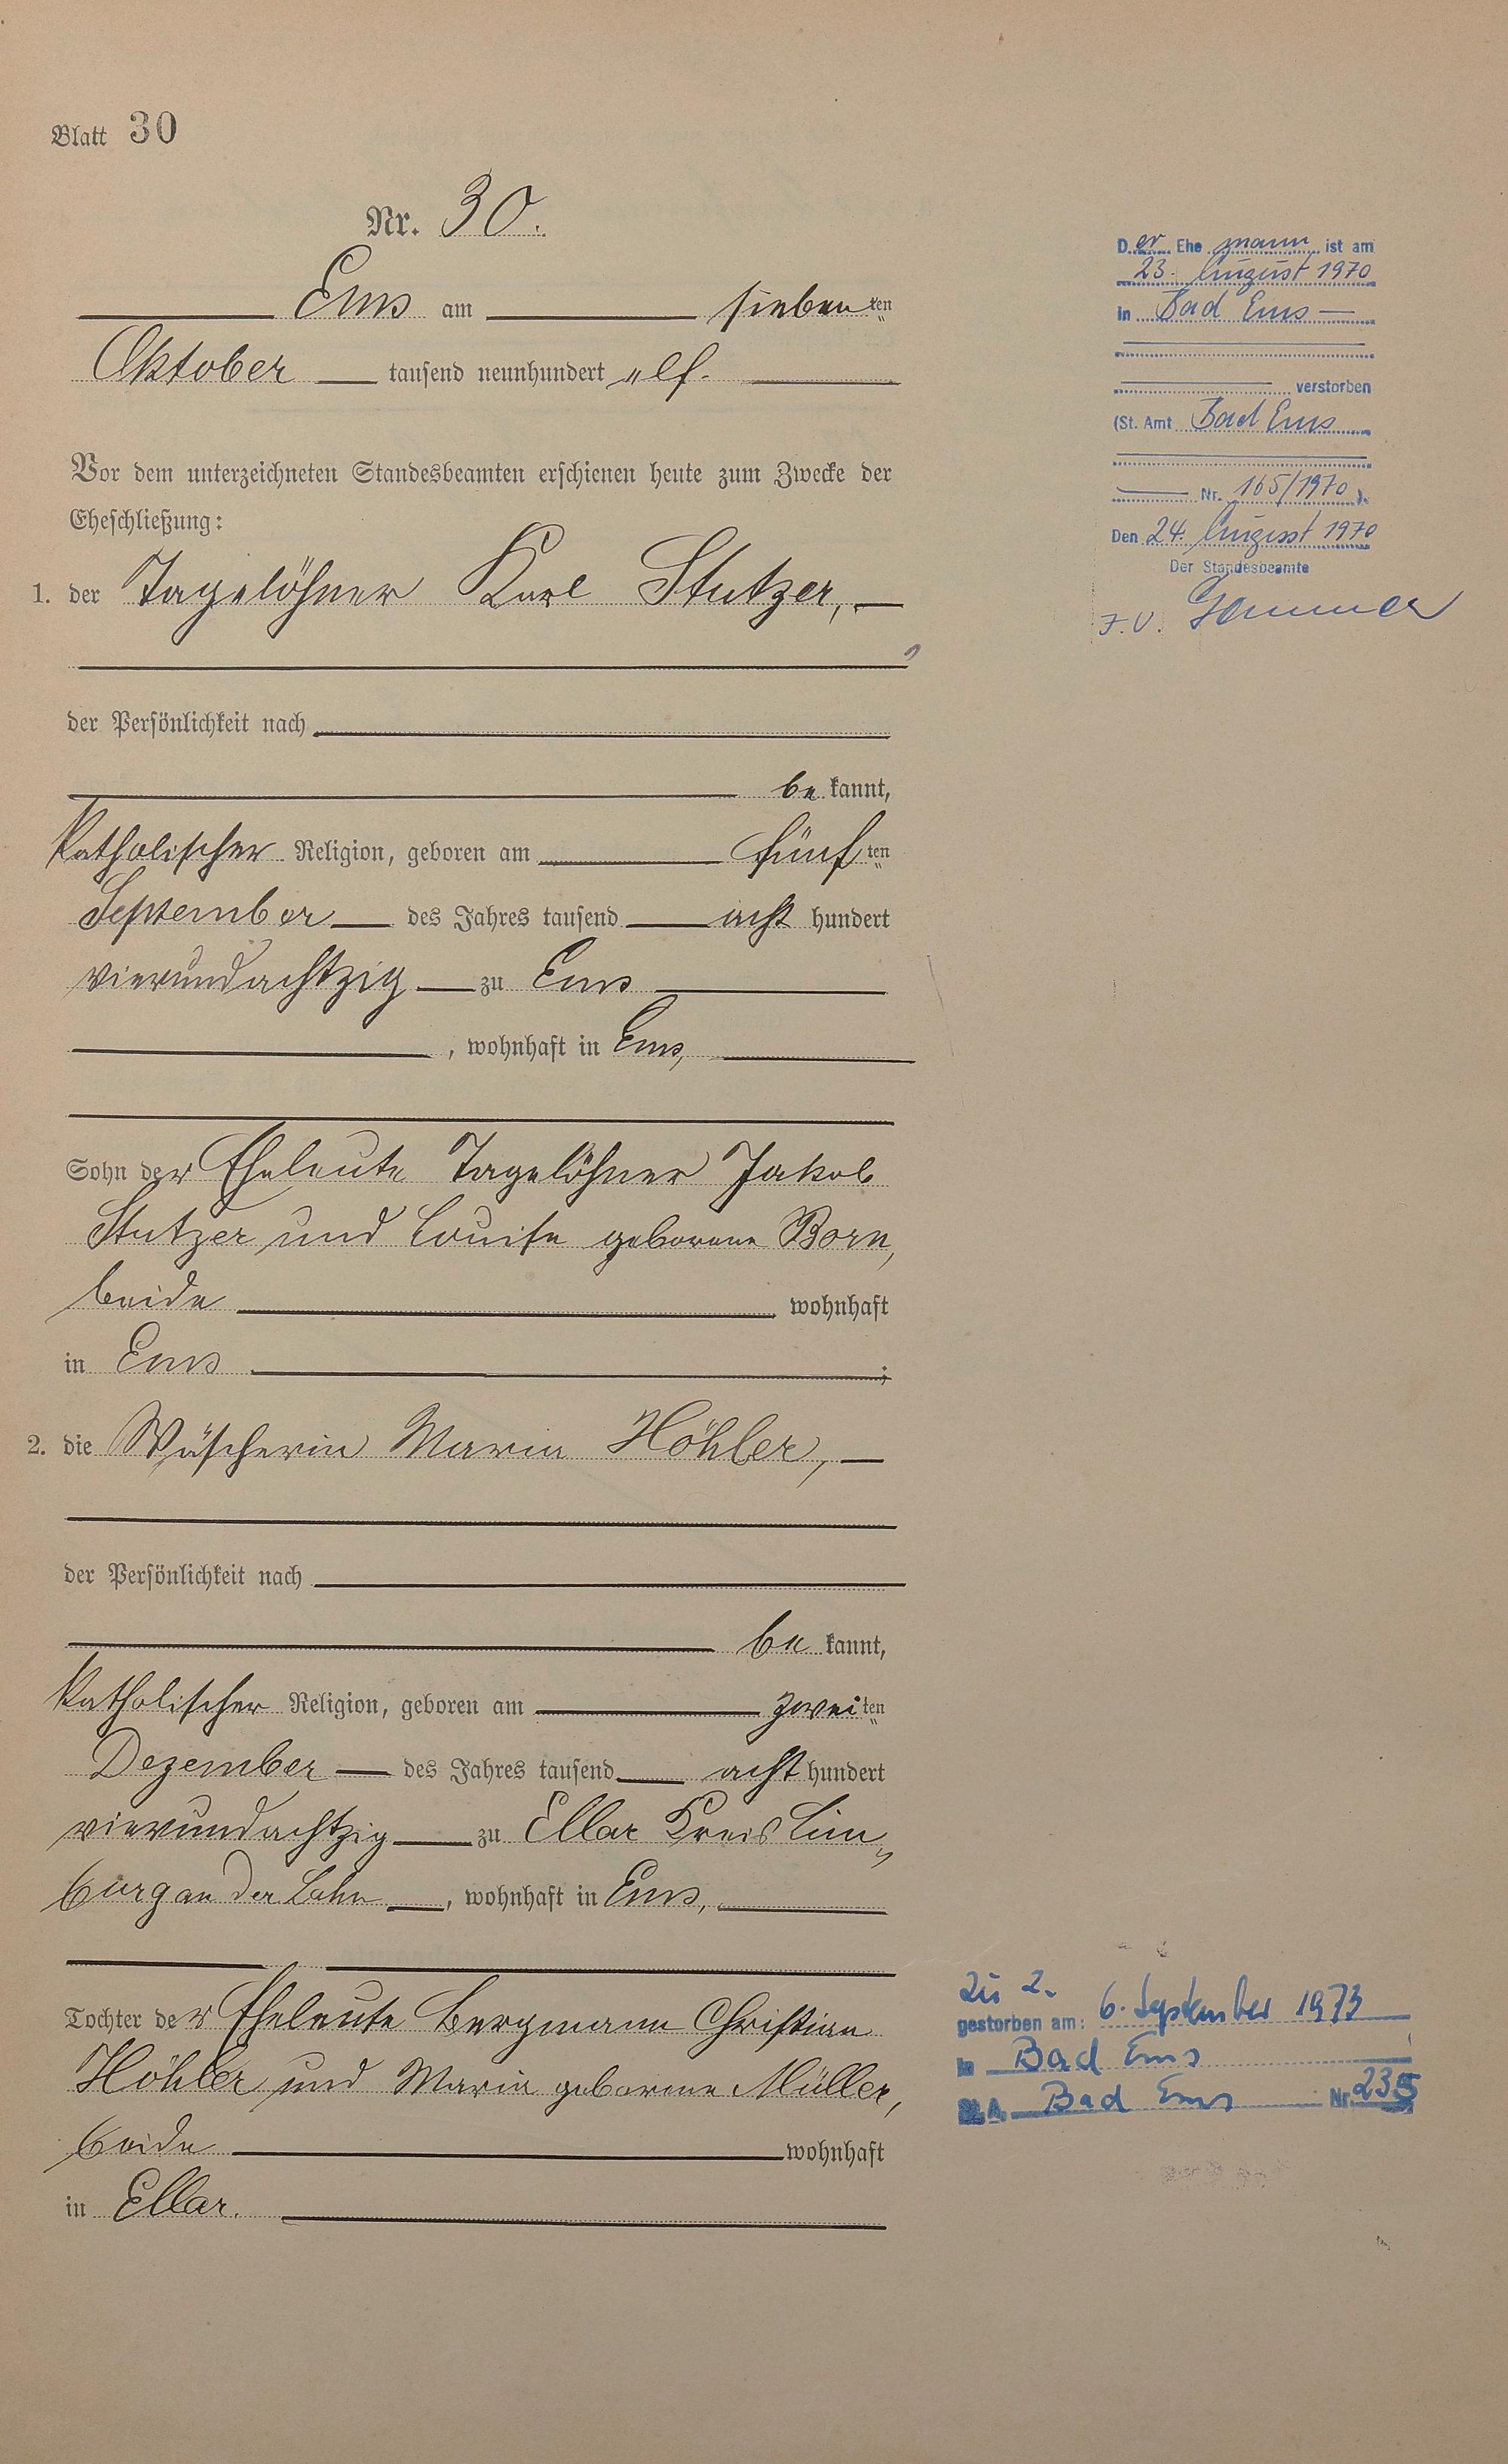 Blatt 30
Nr. 30.
Ems am siebenten
Oktober tausend neunhundert elf.
Vor dem unterzeichneten Standesbeamten erschienen heute zum Zwecke der
Eheschließung:
1. der Tagelöhner Karl Stutzer,
der Persönlichkeit nach
bekannt,
katholischer Religion, geboren am fünften
September des Jahres tausend acht hundert
vierundachtzig zu Ems
, wohnhaft in Ems,
Sohn der Eheleute Tagelöhner Jakob
Stutzer und Louise geborene Born,
beide wohnhaft
in Ems ;
2. die Wäscherin Maria Höhler,
der Persönlichkeit nach
bekannt,
katholischer Religion, geboren am zweiten
Dezember des Jahres tausend acht hundert
vierundachtzig zu Ellar Kreis Lim„
burg an der Lahn , wohnhaft in Ems,
Tochter der Eheleute Bergmann Christian
Höhler und Maria geborene Müller,
beide wohnhaft
in Ellar.
Der Ehemann ist am
23. August 1970
in Bad Ems
verstorben
(St. Amt Bad Ems
Nr. 165/1970).
Den 24. August 1970
Der Standesbeamte
J.V.
Zu 2.
gestorben am: 6. September 1973
in Bad Ems
St. A. Bad Ems Nr. 235